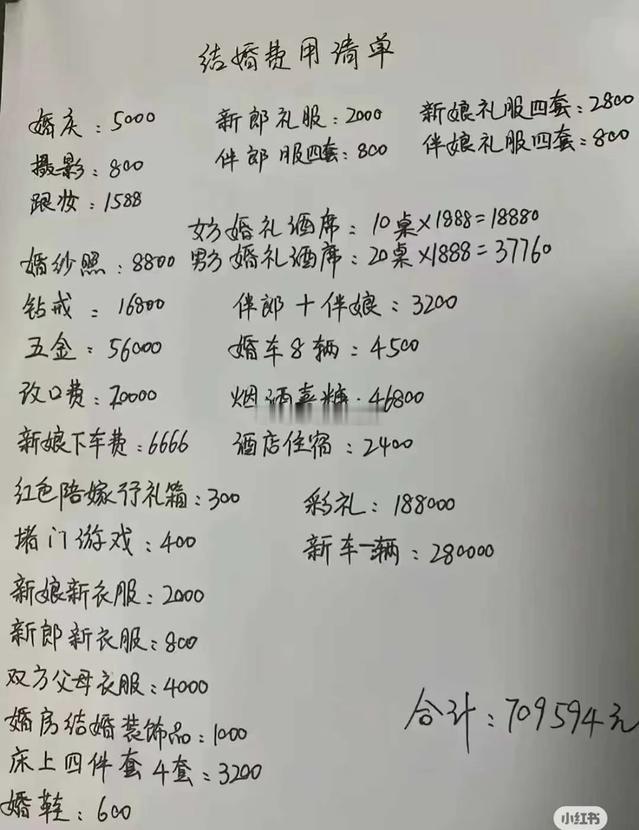 结婚费用清单
婚庆：5000 新郎礼服：2000 新娘礼服四套：2800
摄影：800 伴郎服四套：800 伴娘礼服四套：800
跟妆：1588
女方婚礼酒席：10桌×1888=18880
婚纱照：8800 男方婚礼酒席：20桌×1888=37760
钻戒：16800 伴郎+伴娘：3200
五金：56000 婚车8辆：4500
改口费：20000 烟酒喜糖：46800
新娘下车费：6666 酒店住宿：2400
红色陪嫁行礼箱：300 彩礼：188000
堵门游戏：400 新车一辆：280000
新娘新衣服：2000
新郎新衣服：800
双方父母衣服：4000
婚房结婚装饰品：1000
床上四件套4套：3200
婚鞋：600
合计：709594元
小红书